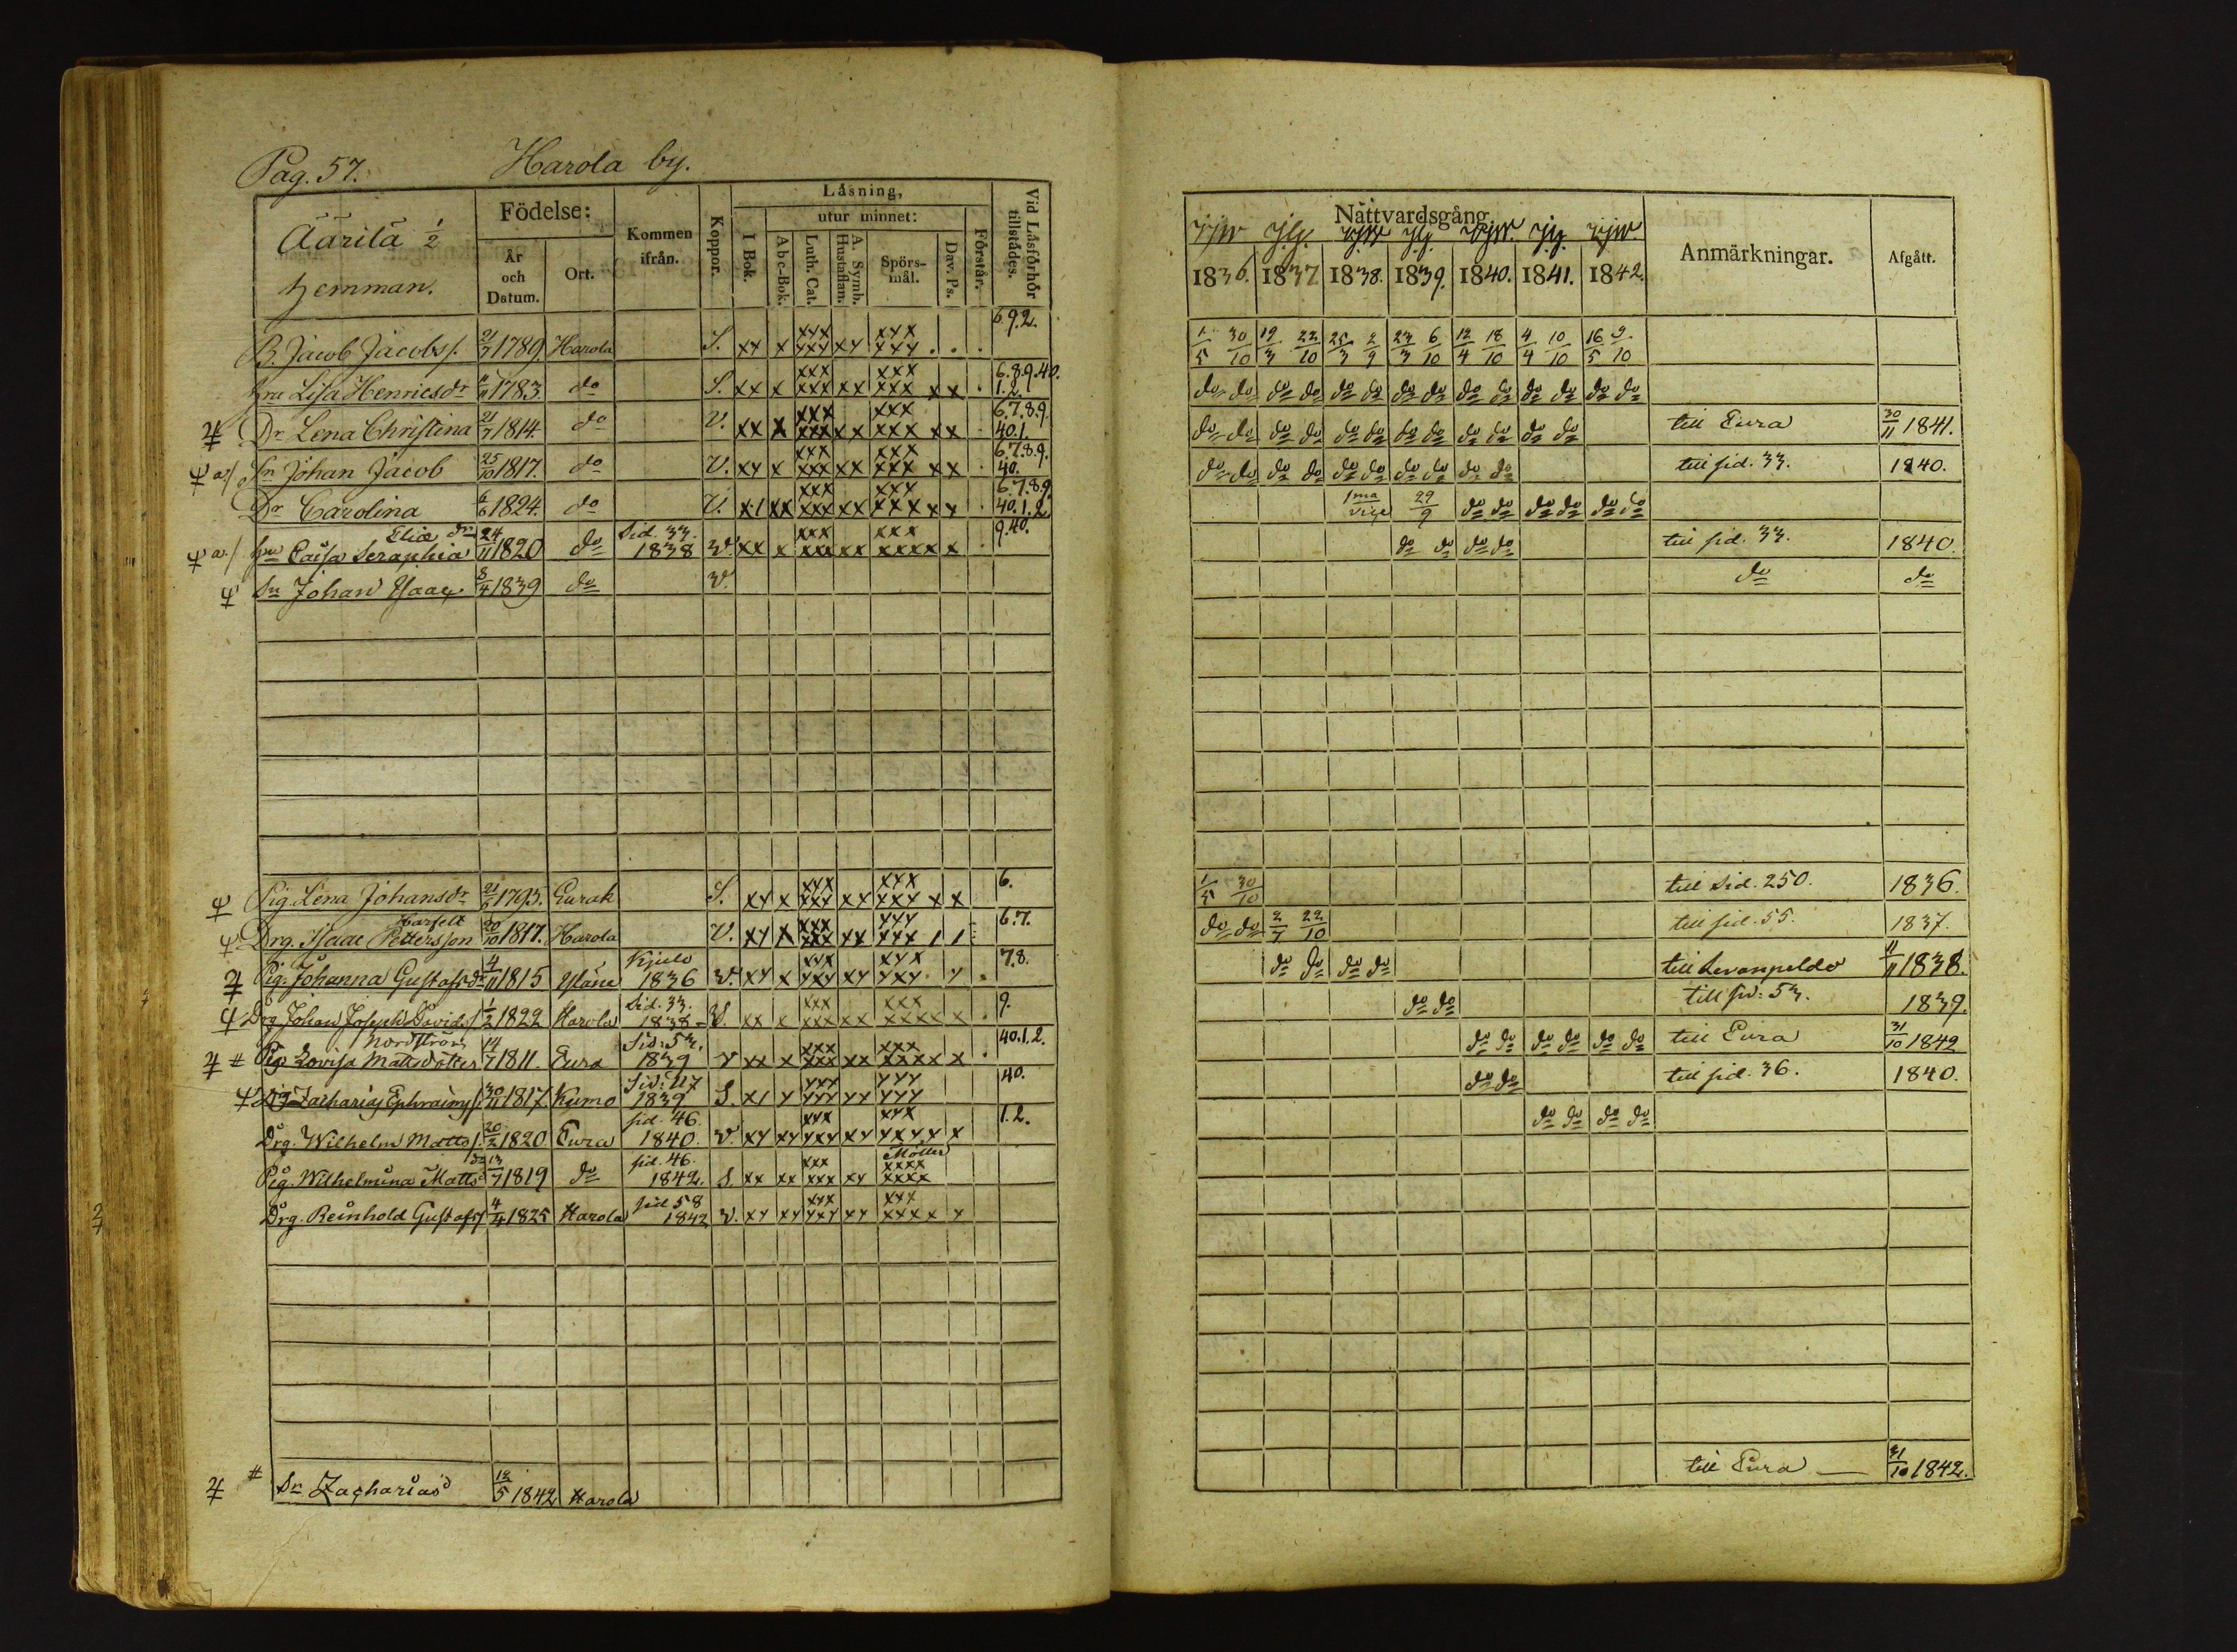 Pag. 57. Harola by.
Äärilä 1/2 hemman.
Födelse:
År och Datum.
Ort.
Kommen ifrån.
Koppor.
Läsning,
I Bok.
utur minnet:
Abc-Bok.
Luth. Cat.
A. Symb. Hustaflan.
Spörs-mål.
Dav. Ps.
Förstår.
Vid Läsförhör tillstädes.
Nattvardsgång
1836. 1837 1838. 1839. 1840. 1841. 1842.
Anmärkningar.
Afgått.
B. Jacob Jacobss. 21/3 1789 Harola S. xx x xxx xxx xx xxx xxx . . . 6.9.2. 1/5 30/10 19/3 22/10 25/3 2/9 23/3 6/10 12/4 18/10 4/4 10/10 16/5 9/10
hru Lisa Henricsdr 1783 do S. xx x xxx xxx xx xxx xxx x x . 6.8.9.40. 1.2. do do do do do do do do do do do do do do
Dr Lena Christina 21/7 1814. do V. xx x xxx xxx xx xxx xxx x x . 6.7.8.9. 40.1. do do do do do do do do do do do do till Eura 30/11 1841.
Sn Johan Jacob 25/10 1817. do V. xx x xxx xxx xx xxx xxx x x . 6.7.8.9. 40. do do do do do do do do do do till sid. 33. 1840.
Dr Carolina 6/6 1824. do V. xx xx xxx xxx xx xxx xxx x x 6.7.8.9. 40.1.2. 1ma vice 29/9 do do do do do do
Eliæ dr
hu Caisa Seraphia 24/11 1820 do Sid. 33. 1838 V. xx x xxx xxx xx xxx xxx x x . 9.40. do do do do till sid. 33. 1840.
Sn Johan Isaac 8/4 1839 do V. do do
Pig. Lena Johansdr 21/6 1793. Eurak S. xx x xxx xxx xx xxx xxx x x 6. 1/5 30/10 till Sid. 250. 1836.
Harfelt
Drg. Isaac Pettersson 20/10 1817. Harola V. xx x xxx xxx xx xxx xxx 6.7. do do 2/7 22/10 till sid. 55. 1837.
Pig. Johanna Gustafsdr 4/11 1815 Yläne Kjulo 1836 V. xx x xxx xxx xx xxx xxx x . 7.8. do do do do till Levanpeldo 11/11 1838.
Drg Johan Joseph Davids. 1/2 1822 Harola Sid. 33. 1838 V. xx x xxx xxx xx xxx xxx x x . 9. do do till sid: 53. 1839.
Nordström
Pig. Lovisa Mattsdotter 14/7 1811. Eura Sid: 53. 1839 V xx x xxx xxx xx xxx xxx x x . 40.1.2. do do do do do do till Eura 31/10 1842
Drg Zacharias Ephraims s. 30/11 1817. Kumo Sid: 117 1839 S xx x xxx xxx xx xxx xxx 40. do do till sid. 36. 1840.
Drg. Wilhelm Matts s. 20/3 1820 Eura sid. 46. 1840. V. xx xx xxx xxx xx xxx xxx x x 1.2. do do do do
Pig. Wilhelmina Mattsdr 13/7 1819 do sid. 46. 1842. S. xx xx xxx xxx xx Möller xxxx xxxx
Drg. Reinhold Gustafss. 4/4 1825 Harola sid 58 1842 V. xx xx xxx xxx xx xxx xxxx x
# Sn Zacharias 12/5 1842 Harola till Eura — 31/10 1842.